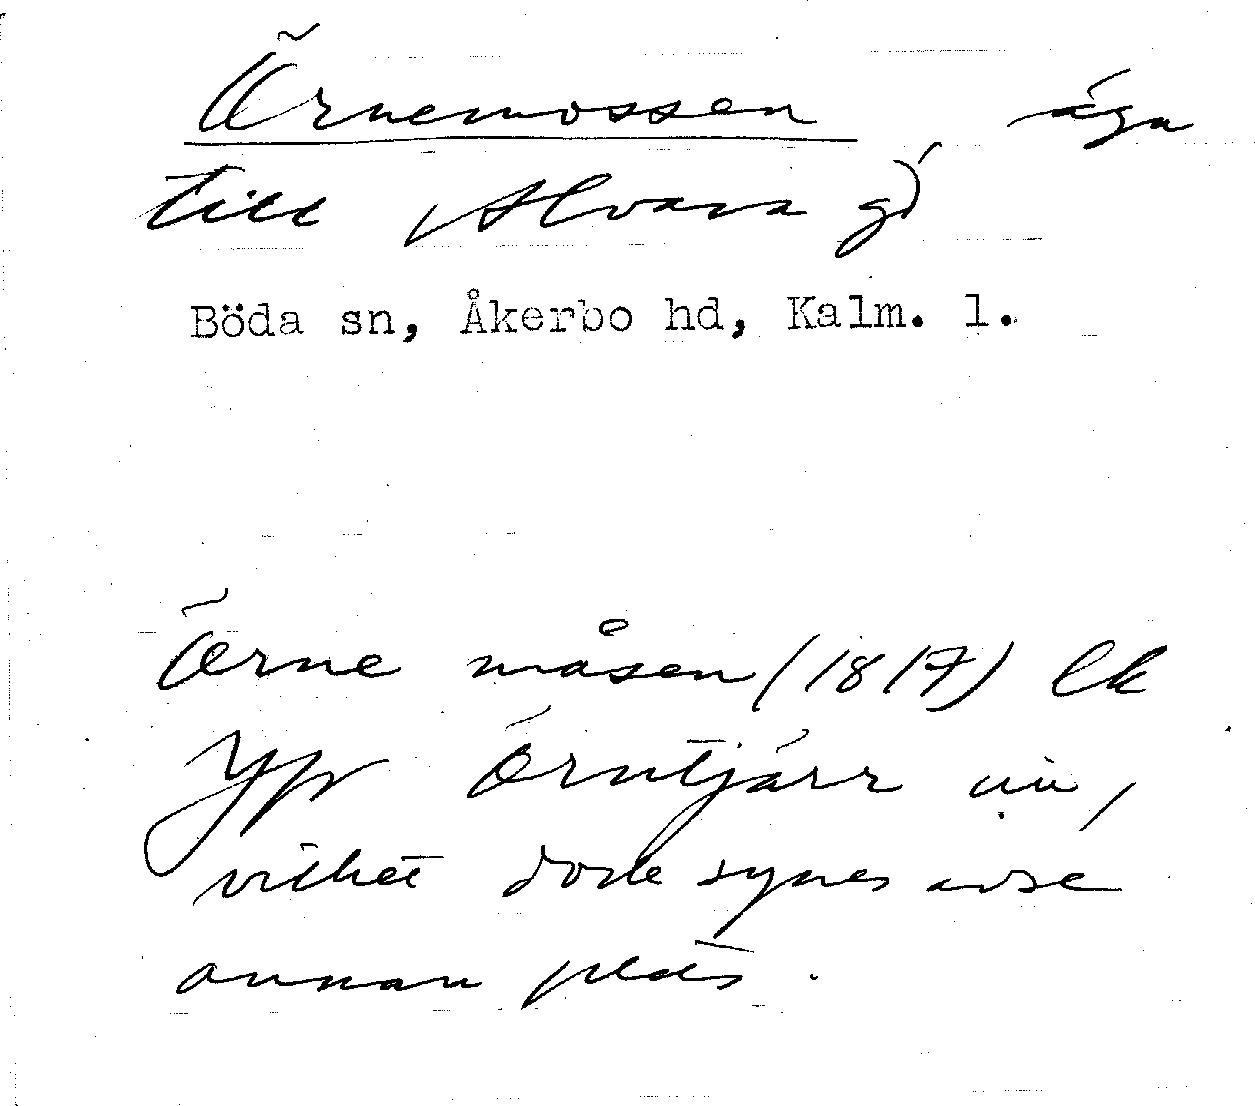 Örnemossen äga
till Alvara gd
Böda sn, Åkerbo hd, Kalm. l.
Örne måsen (1817) Lk
Yp Örntjärr nu,
vilket dock synes avse
annan plats.